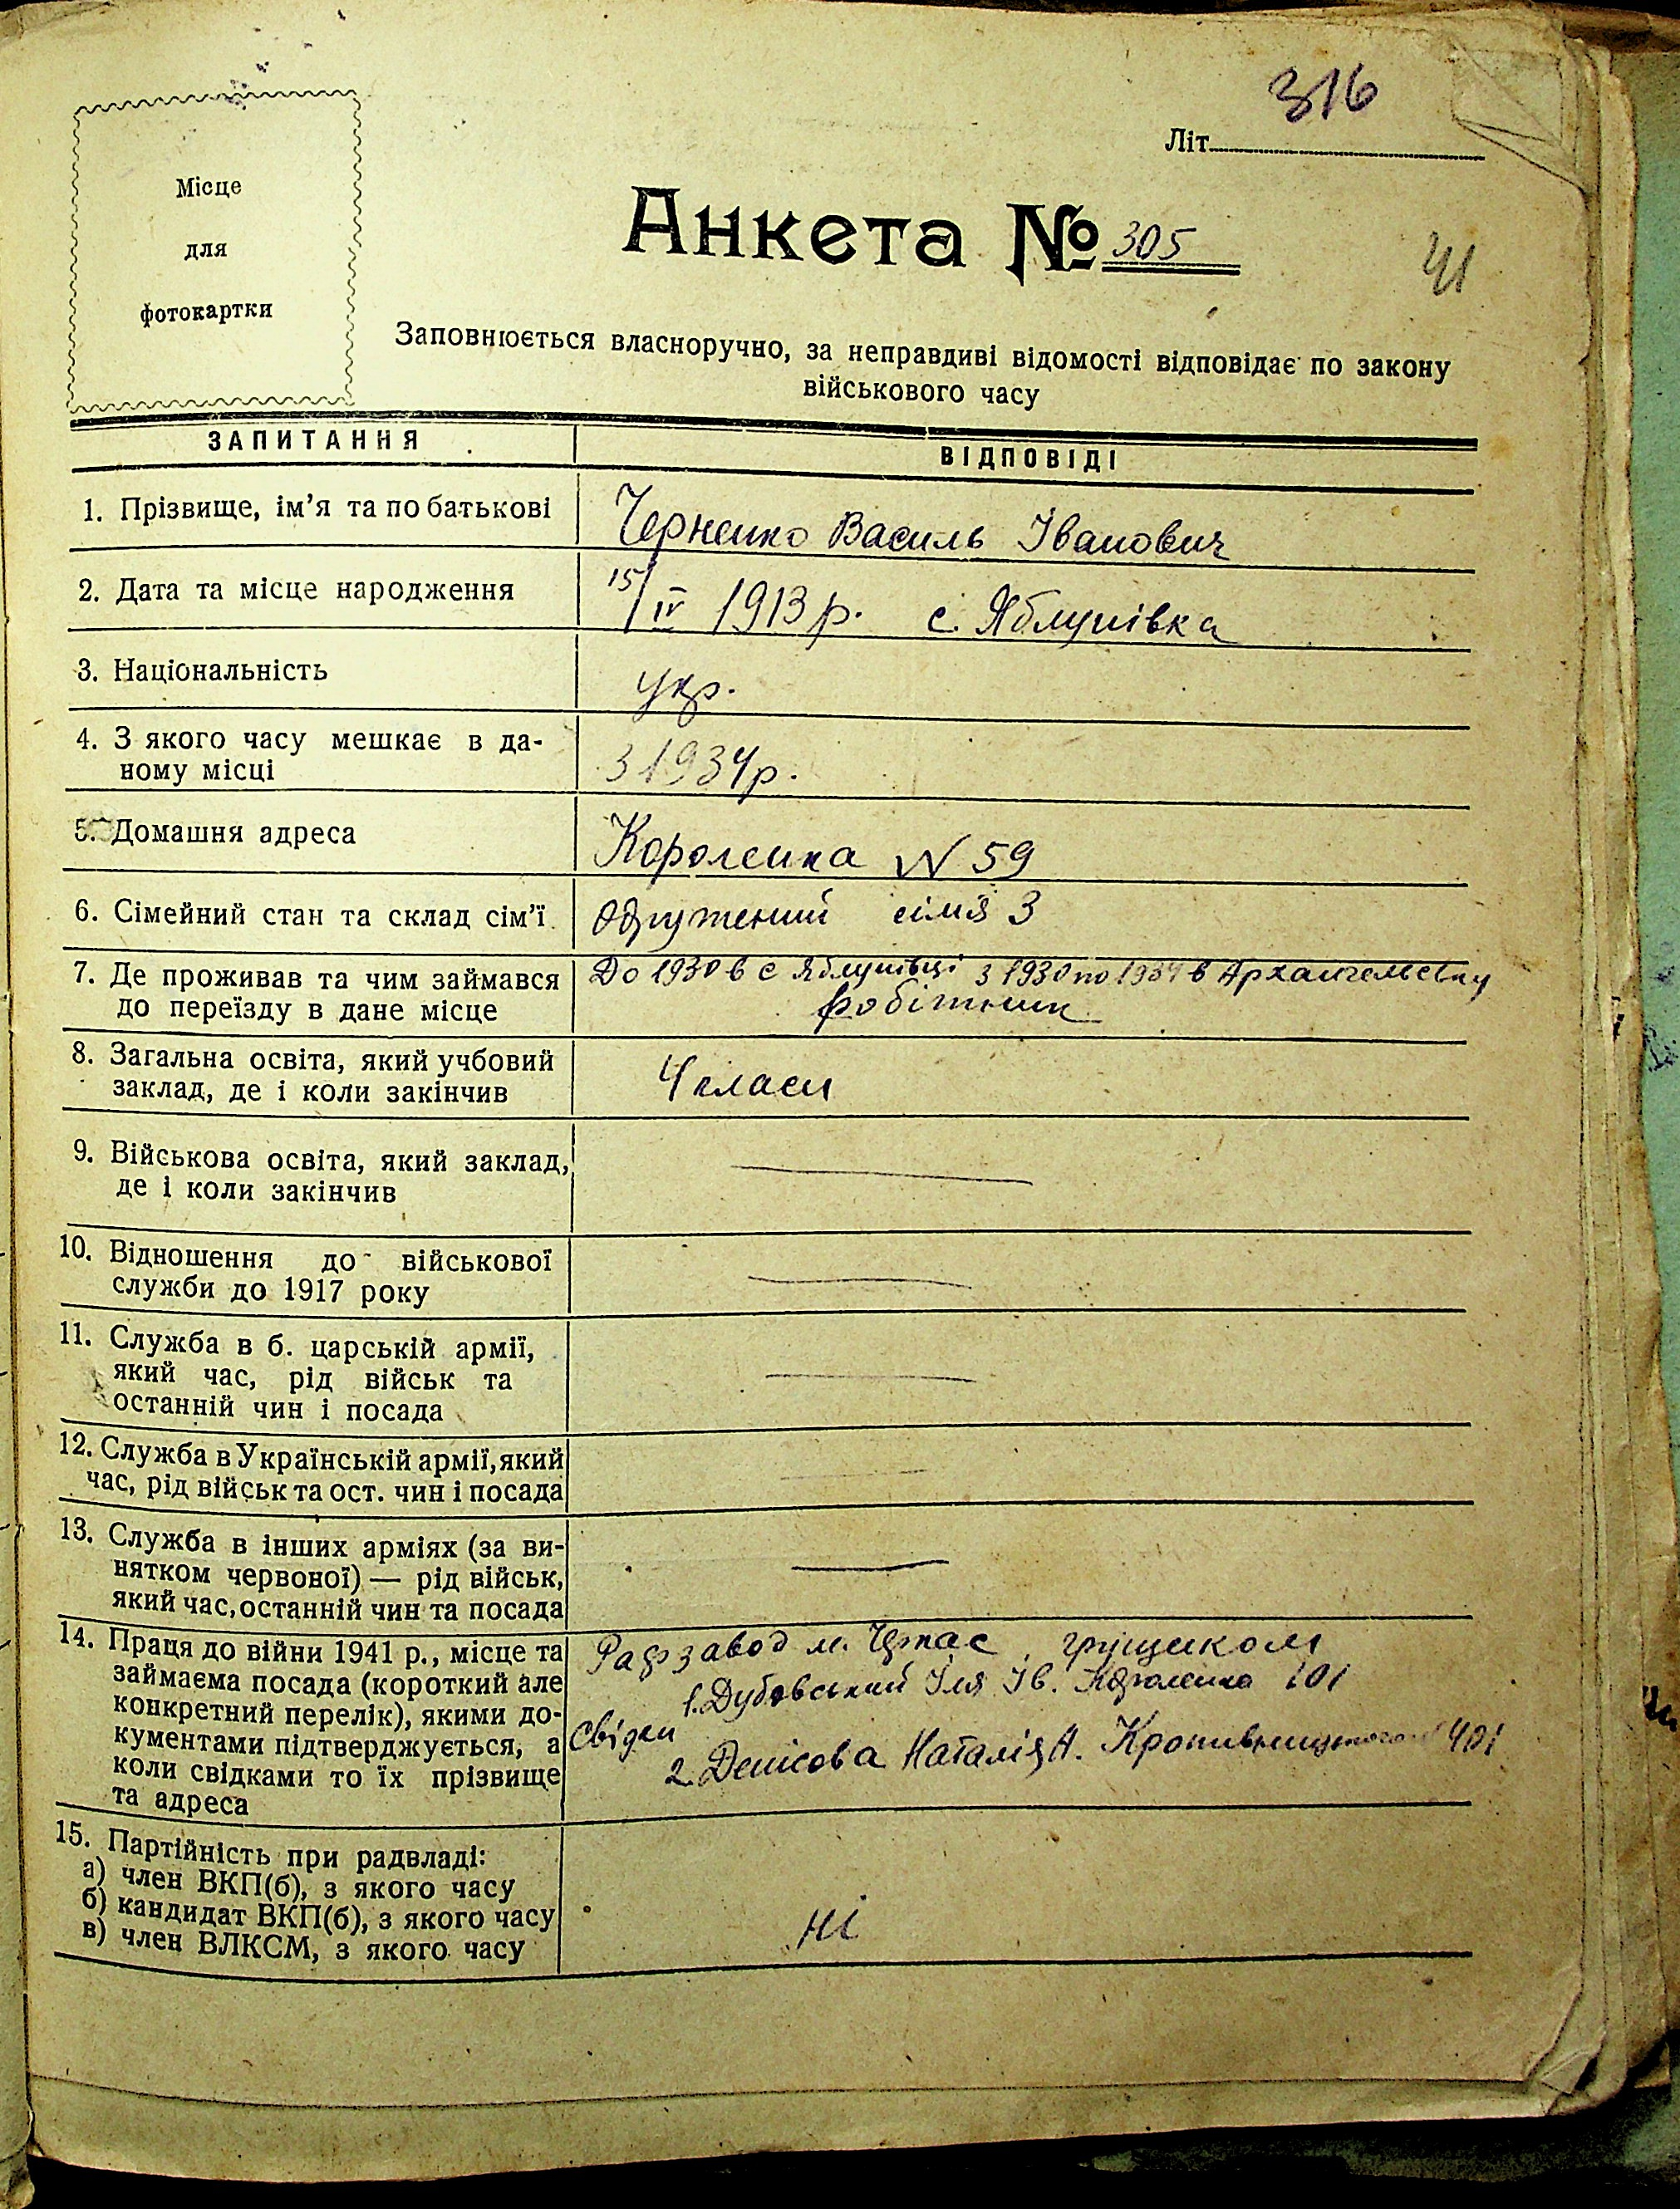 316
Літ
Місце
для
фотокартки
Анкета № 305
41
Заповнюється власноручно, за неправдиві відомості відповідає по закону
військового часу
ЗАПИТАННЯ
ВІДПОВІДІ
1. Прізвище, ім'я та по батькові
Черненко Василь Іванович
2. Дата та місце народження
15/IV 1913 р. с. Яблунівка
3. Національність
укр.
4. З якого часу мешкає в да-
ному місці
з 1934 р.
5. Домашня адреса
Короленка N 59
6. Сімейний стан та склад сім'ї
Одружений сімя 3
7. Де проживав та чим займався
до переїзду в дане місце
До 1930 в с Яблунівці з 1930 по 1934 в Архангельську
робітник
8. Загальна освіта, який учбовий
заклад, де і коли закінчив
4 класи
9. Військова освіта, який заклад,
де і коли закінчив
10. Відношення до військової
служби до 1917 року
11. Служба в б. царській армії,
який час, рід військ та
останній чин і посада
12. Служба в Українській армії, який
час, рід військ та ост. чин і посада
13. Служба в інших арміях (за ви-
нятком червоної) — рід військ,
який час, останній чин та посада
14. Праця до війни 1941 р., місце та
займаєма посада (короткий але
конкретний перелік), якими до-
кументами підтверджується, а
коли свідками то їх прізвище
та адреса
Рафзавод м. Черкас грущиком
1. Дубовський Іля Ів. Короленка 101
Свідки
2. Денісова Наталія А. Кропивницького 401
15. Партійність при радвладі:
а) член ВКП(б), з якого часу
б) кандидат ВКП(б), з якого часу
в) член ВЛКСМ, з якого часу
ні